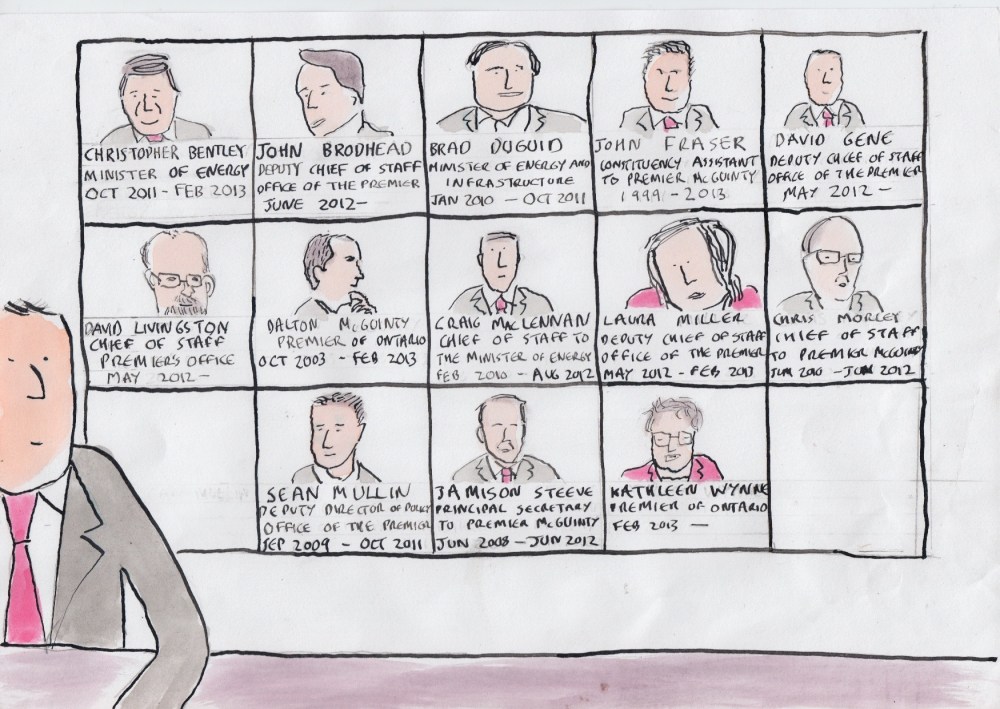 CHRISTOPHER BENTLEY
MINISTER OF ENERGY
OCT 2011 - FEB 2013
JOHN BRODHEAD
DEPUTY CHIEF OF STAFF
OFFICE OF THE PREMIER
JUNE 2012 -
BRAD DUGUID
MINISTER OF ENERGY AND
INFRASTRUCTURE
JAN 2010 - OCT 2011
JOHN FRASER
CONSTITUENCY ASSISTANT
TO PREMIER McGUINTY
1999 - 2013
DAVID GENE
DEPUTY CHIEF OF STAFF
OFFICE OF THE PREMIER
MAY 2012 -
DAVID LIVINGSTON
CHIEF OF STAFF
PREMIER'S OFFICE
MAY 2012 -
DALTON McGUINTY
PREMIER OF ONTARIO
OCT 2003 - FEB 2013
CRAIG MACLENNAN
CHIEF OF STAFF TO
THE MINISTER OF ENERGY
FEB 2010 - AUG 2012
LAURA MILLER
DEPUTY CHIEF OF STAFF
OFFICE OF THE PREMIER
MAY 2012 - FEB 2013
CHRIS MORLEY
CHIEF OF STAFF
TO PREMIER McGUINTY
JUN 2010 - JUN 2012
SEAN MULLIN
DEPUTY DIRECTOR OF POLICY
OFFICE OF THE PREMIER
SEP 2009 - OCT 2011
JAMISON STEEVE
PRINCIPAL SECRETARY
TO PREMIER McGUINTY
JUN 2008 - JUN 2012
KATHLEEN WYNNE
PREMIER OF ONTARIO
FEB 2013 -